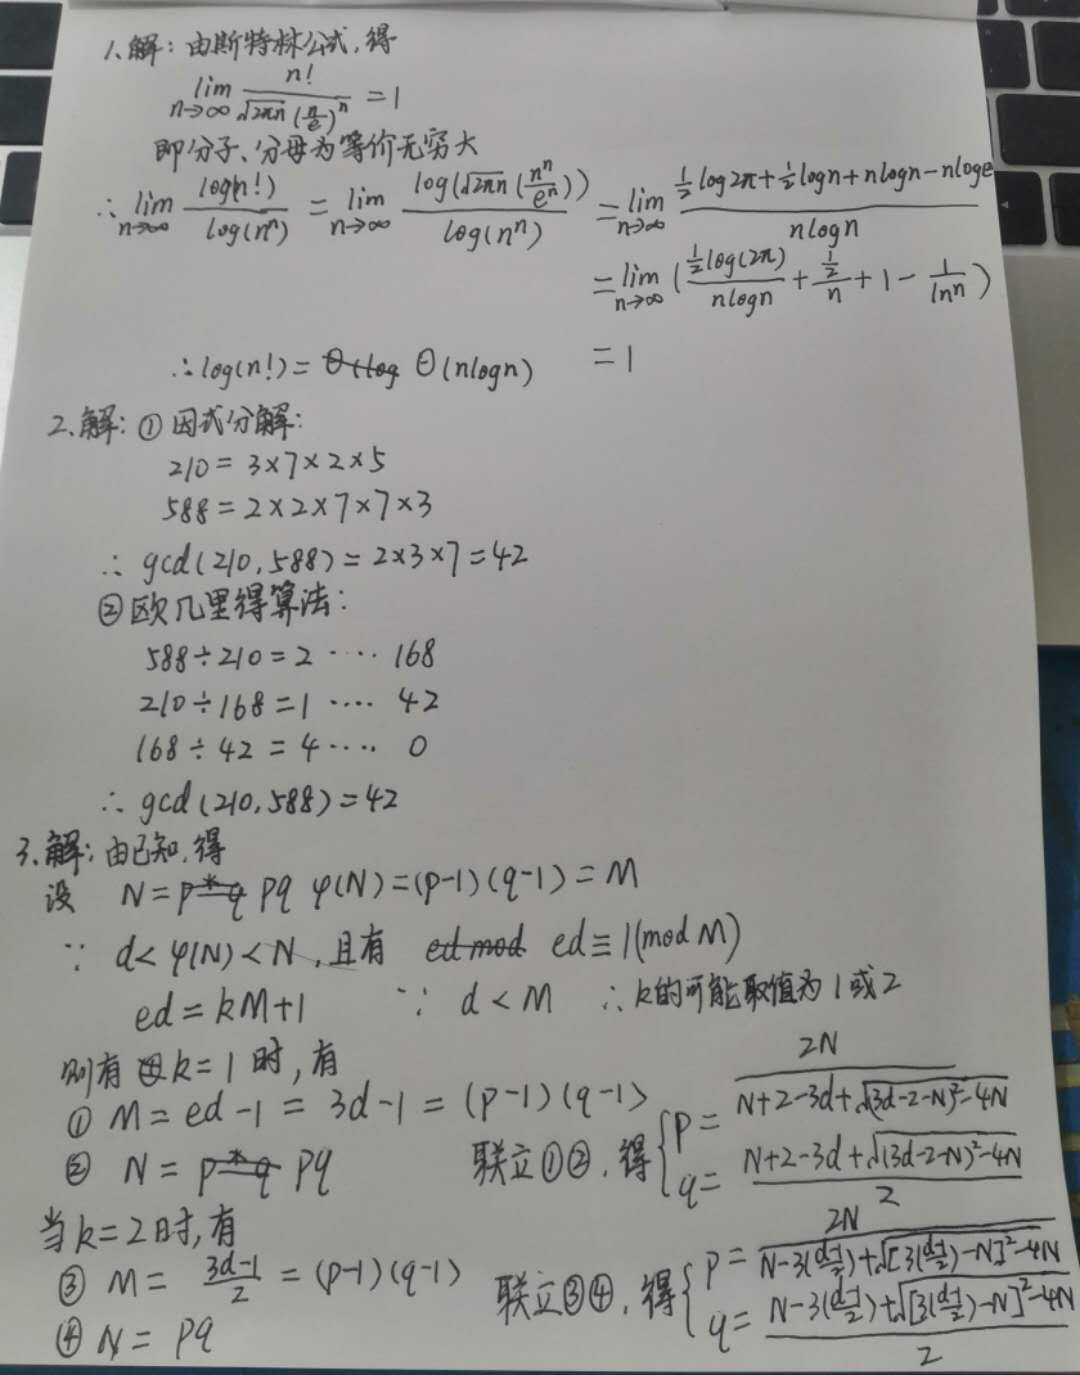 1、解：由斯特林公式，得
lim n→∞ n! / √2πn (n/e)^n = 1
即分子、分母为等价无穷大
∴ lim n→∞ log(n!) / log(n^n) = lim n→∞ log(√2πn (n^n/e^n)) / log(n^n) = lim n→∞ (1/2 log2π + 1/2 logn + nlogn − nloge) / nlogn
= lim n→∞ (1/2 log(2π) / nlogn + 1/2 / n + 1 − 1/ln^n)
∴ log(n!) = Θ(nlogn) = 1
2、解：① 因式分解：
210 = 3×7×2×5
588 = 2×2×7×7×3
∴ gcd(210,588) = 2×3×7 = 42
② 欧几里得算法：
588÷210 = 2 ···· 168
210÷168 = 1 ···· 42
168÷42 = 4 ···· 0
∴ gcd(210,588) = 42
3、解：由已知，得
设 N = pq φ(N) = (p-1)(q-1) = M
∵ d < φ(N) < N，且有 ed ≡ 1(mod M)
ed = kM+1 ∵ d < M ∴ k的可能取值为1或2
则有 k=1时，有
① M = ed-1 = 3d-1 = (p-1)(q-1)
② N = pq 联立①②，得 { p = 2N / N+2-3d+√(3d-2-N)²-4N
q = N+2-3d+√(3d-2-N)²-4N / 2
当k=2时，有
③ M = 3d-1 / 2 = (p-1)(q-1)
④ N = pq 联立③④，得 { p = 2N / N-3(d-1/2)+√[3(d-1/2)-N]²-4N
q = N-3(d-1/2)+√[3(d-1/2)-N]²-4N / 2